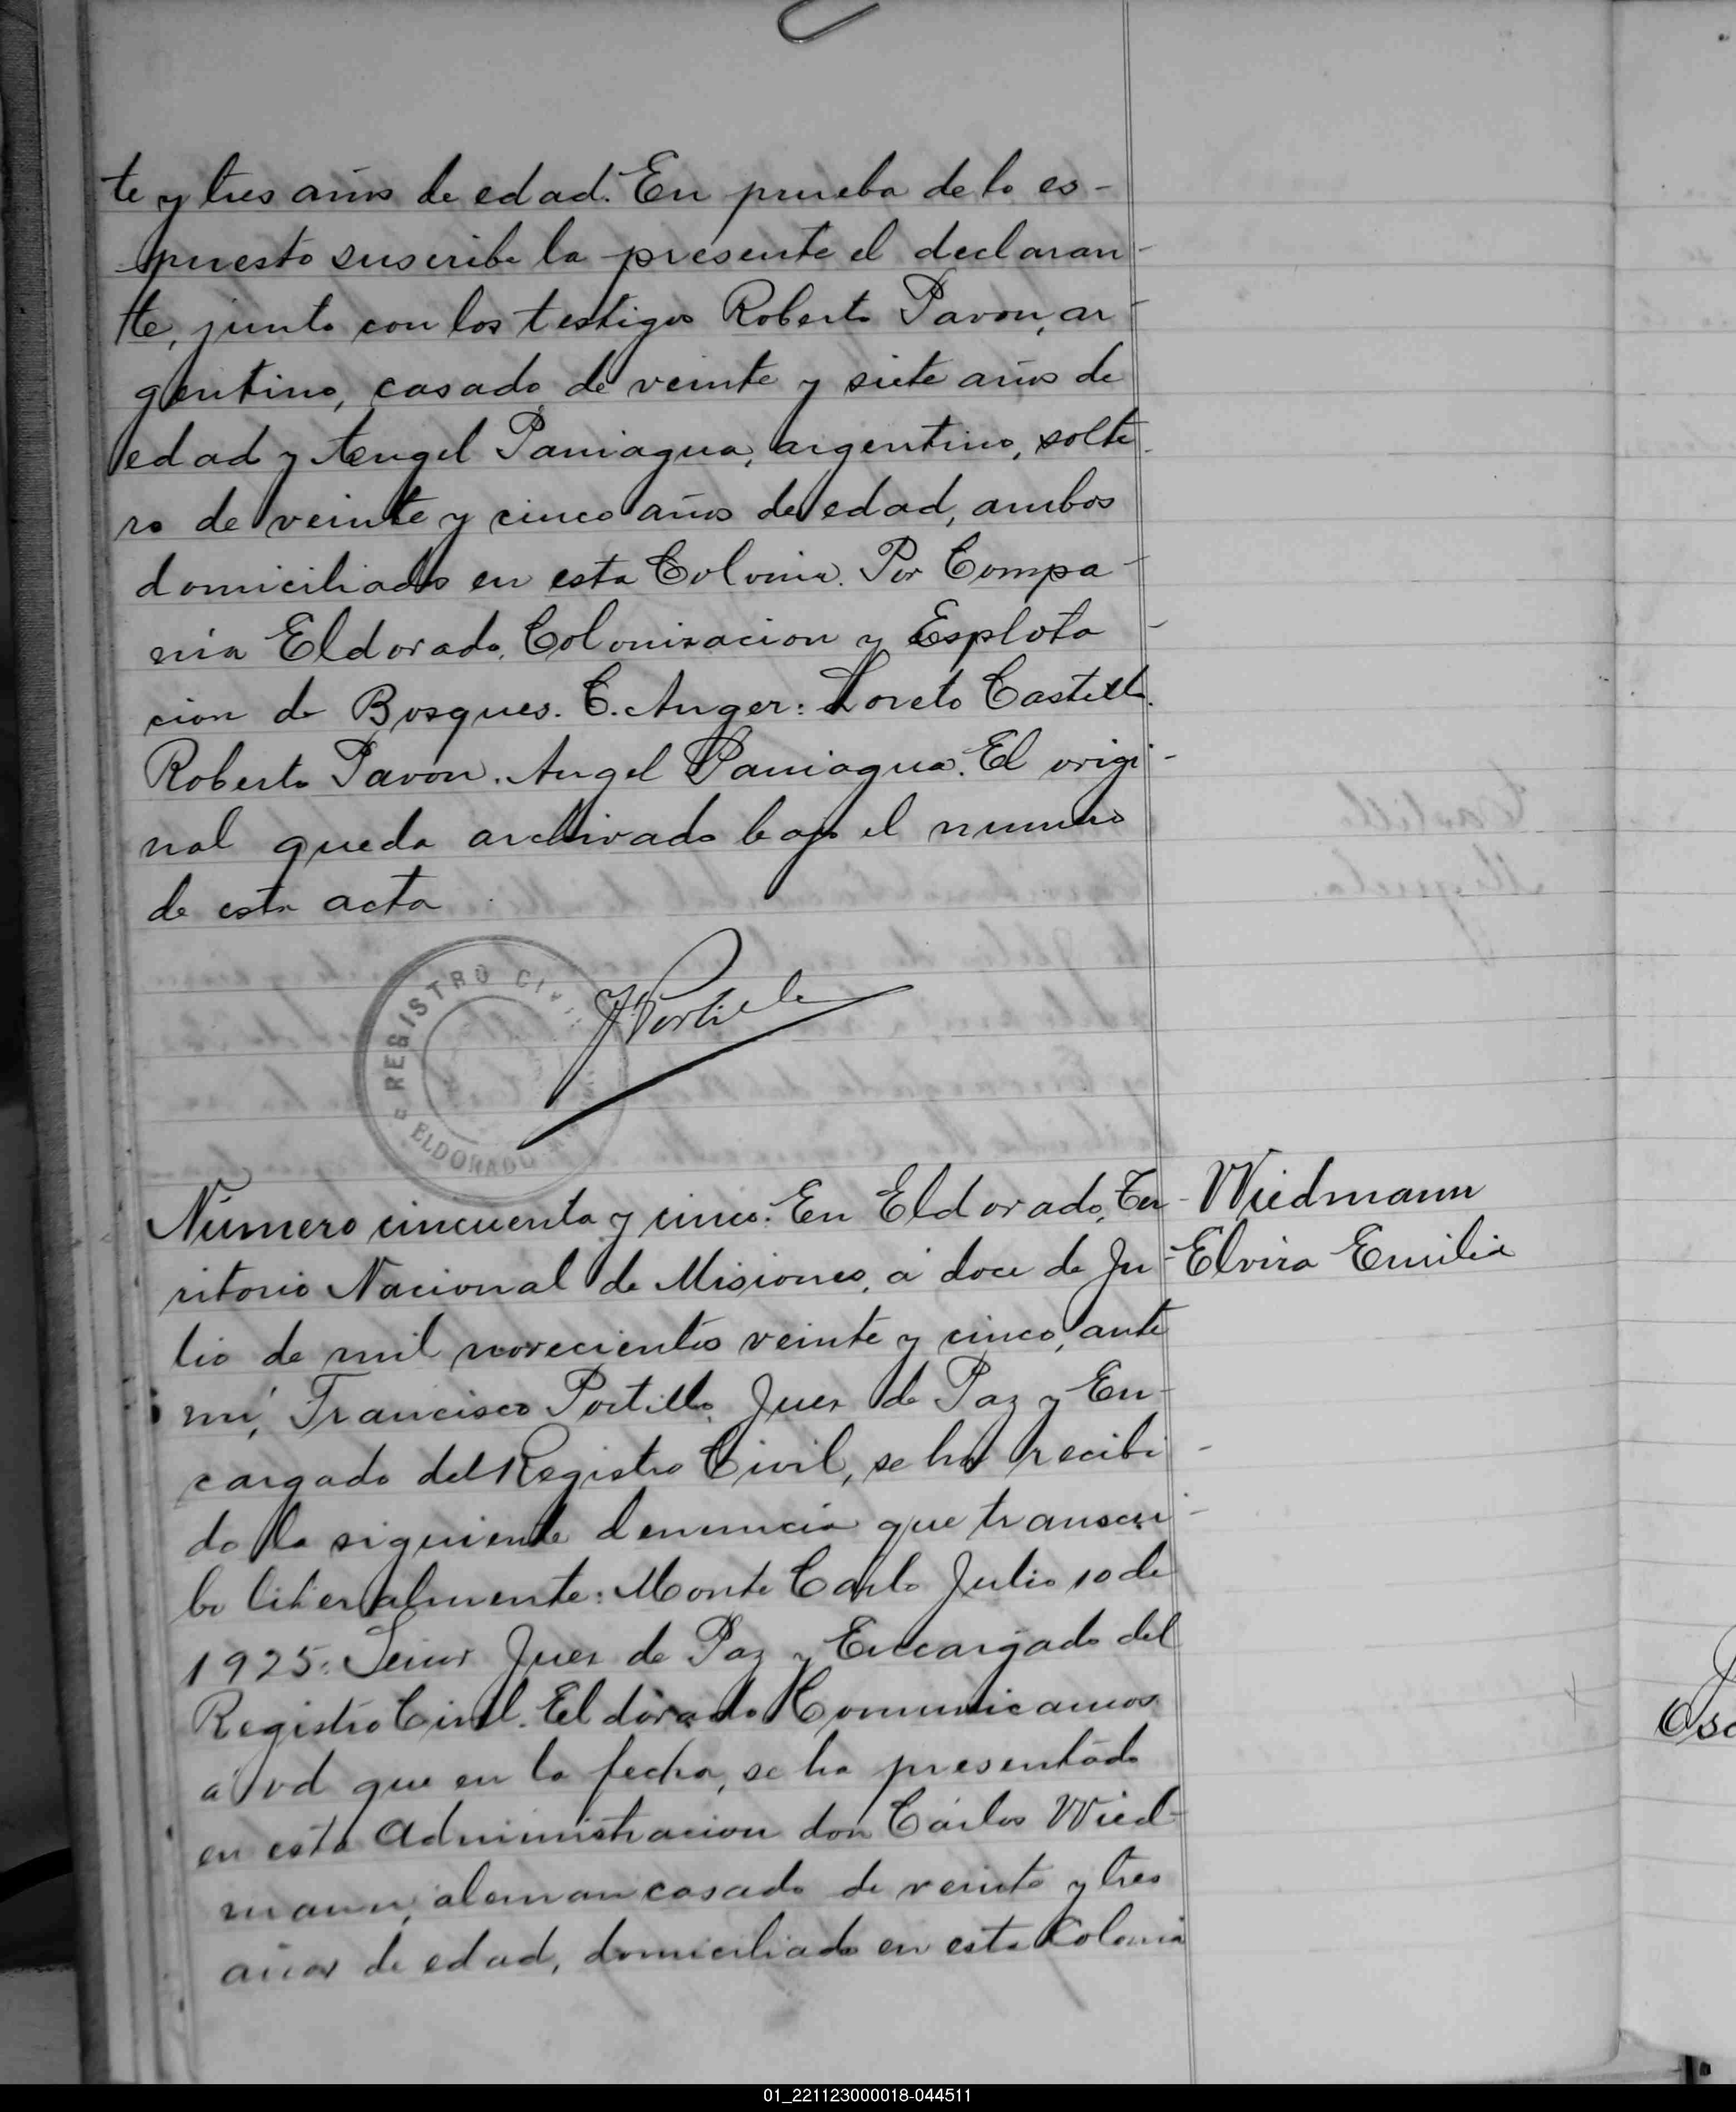 te y tres años de edad. En prueba de lo es-
puesto suscribe la presente el declaran-
te, junto con los testigos Roberto Pavon, ar-
gentino, casado, de veinte y siete años de
edad y Angel Paniagua, argentino, solte-
ro de veinte y cinco años de edad, ambos
domiciliados en esta Colonia. Por Compa-
nia Eldorado, Colonisacion y Esplota-
cion de Bosques. C. Anger: Loreto Castillo.
Roberto Pavon. Angel Paniagua. El origi-
nal queda archivado bajo el numero
de esta acta
REGISTRO CIVIL
ELDORADO
FPortillo
Número cincuenta y cinco. En Eldorado, Ter-
Wiedmann
ritorio Nacional de Misiones, á doce de Ju-
Elvira Emilia
lio de mil novecientos veinte y cinco, ante
mí, Francisco Portillo, Juez de Paz y En-
cargado del Registro Civil, se ha recibi-
do la siguiente denuncia que transcri-
bo literalmente: Monte Carlo Julio 10 de
1925. Señor Juez de Paz y Encargado del
Registro Civil. Eldorado Comunicamos
á vd que en la fecha, se ha presentado
en esta Administracion don Cárlos Wied-
mann, aleman casado de veinte y tres
años de edad, domiciliado en esta Colonia
Castillo
01_221123000018-044511